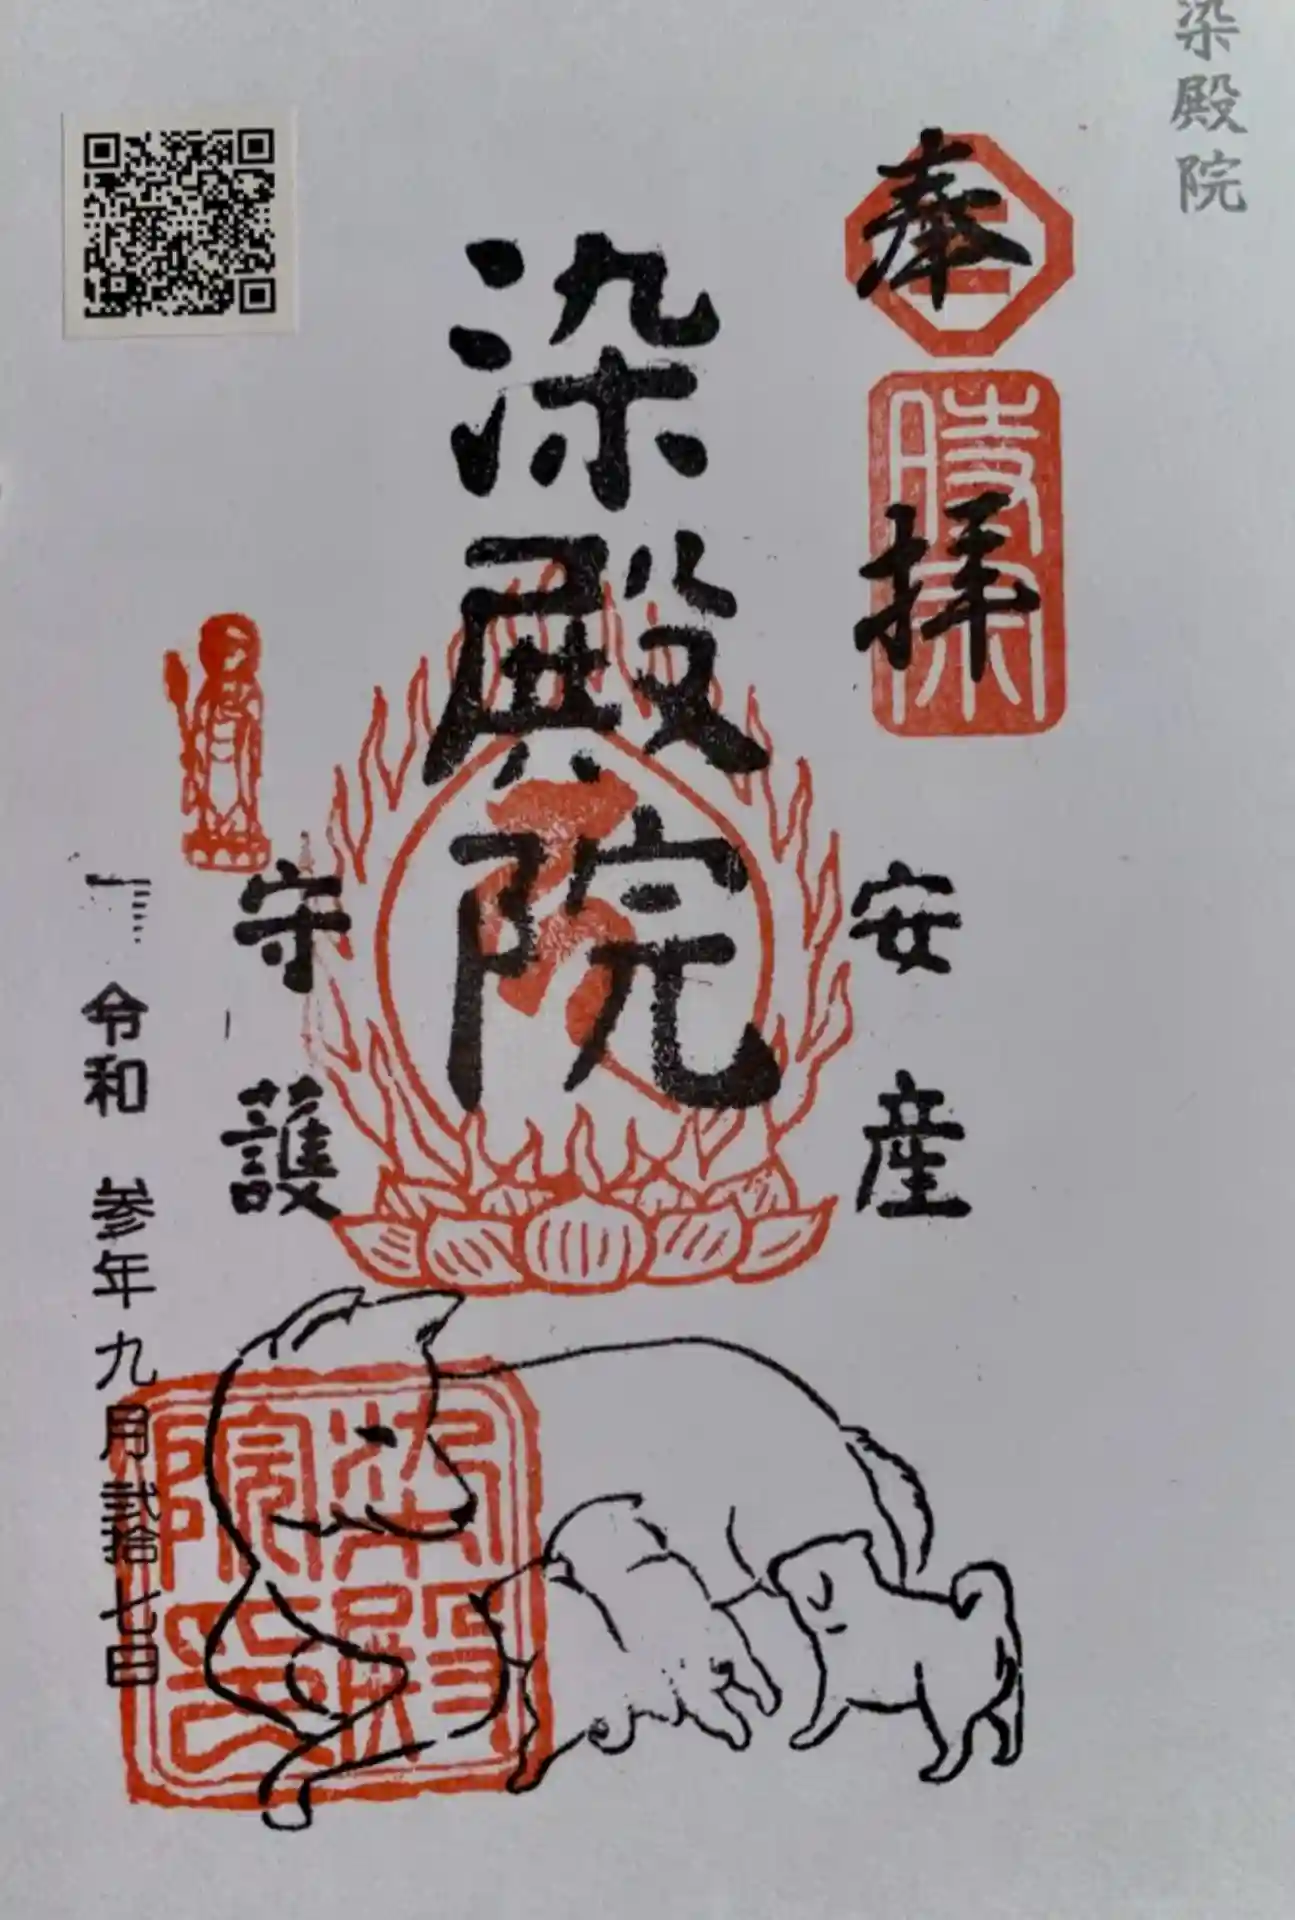 染殿院
奉拝
時宗
安産
染殿院
守護
令和 参年九月弐拾七日
染殿
院印